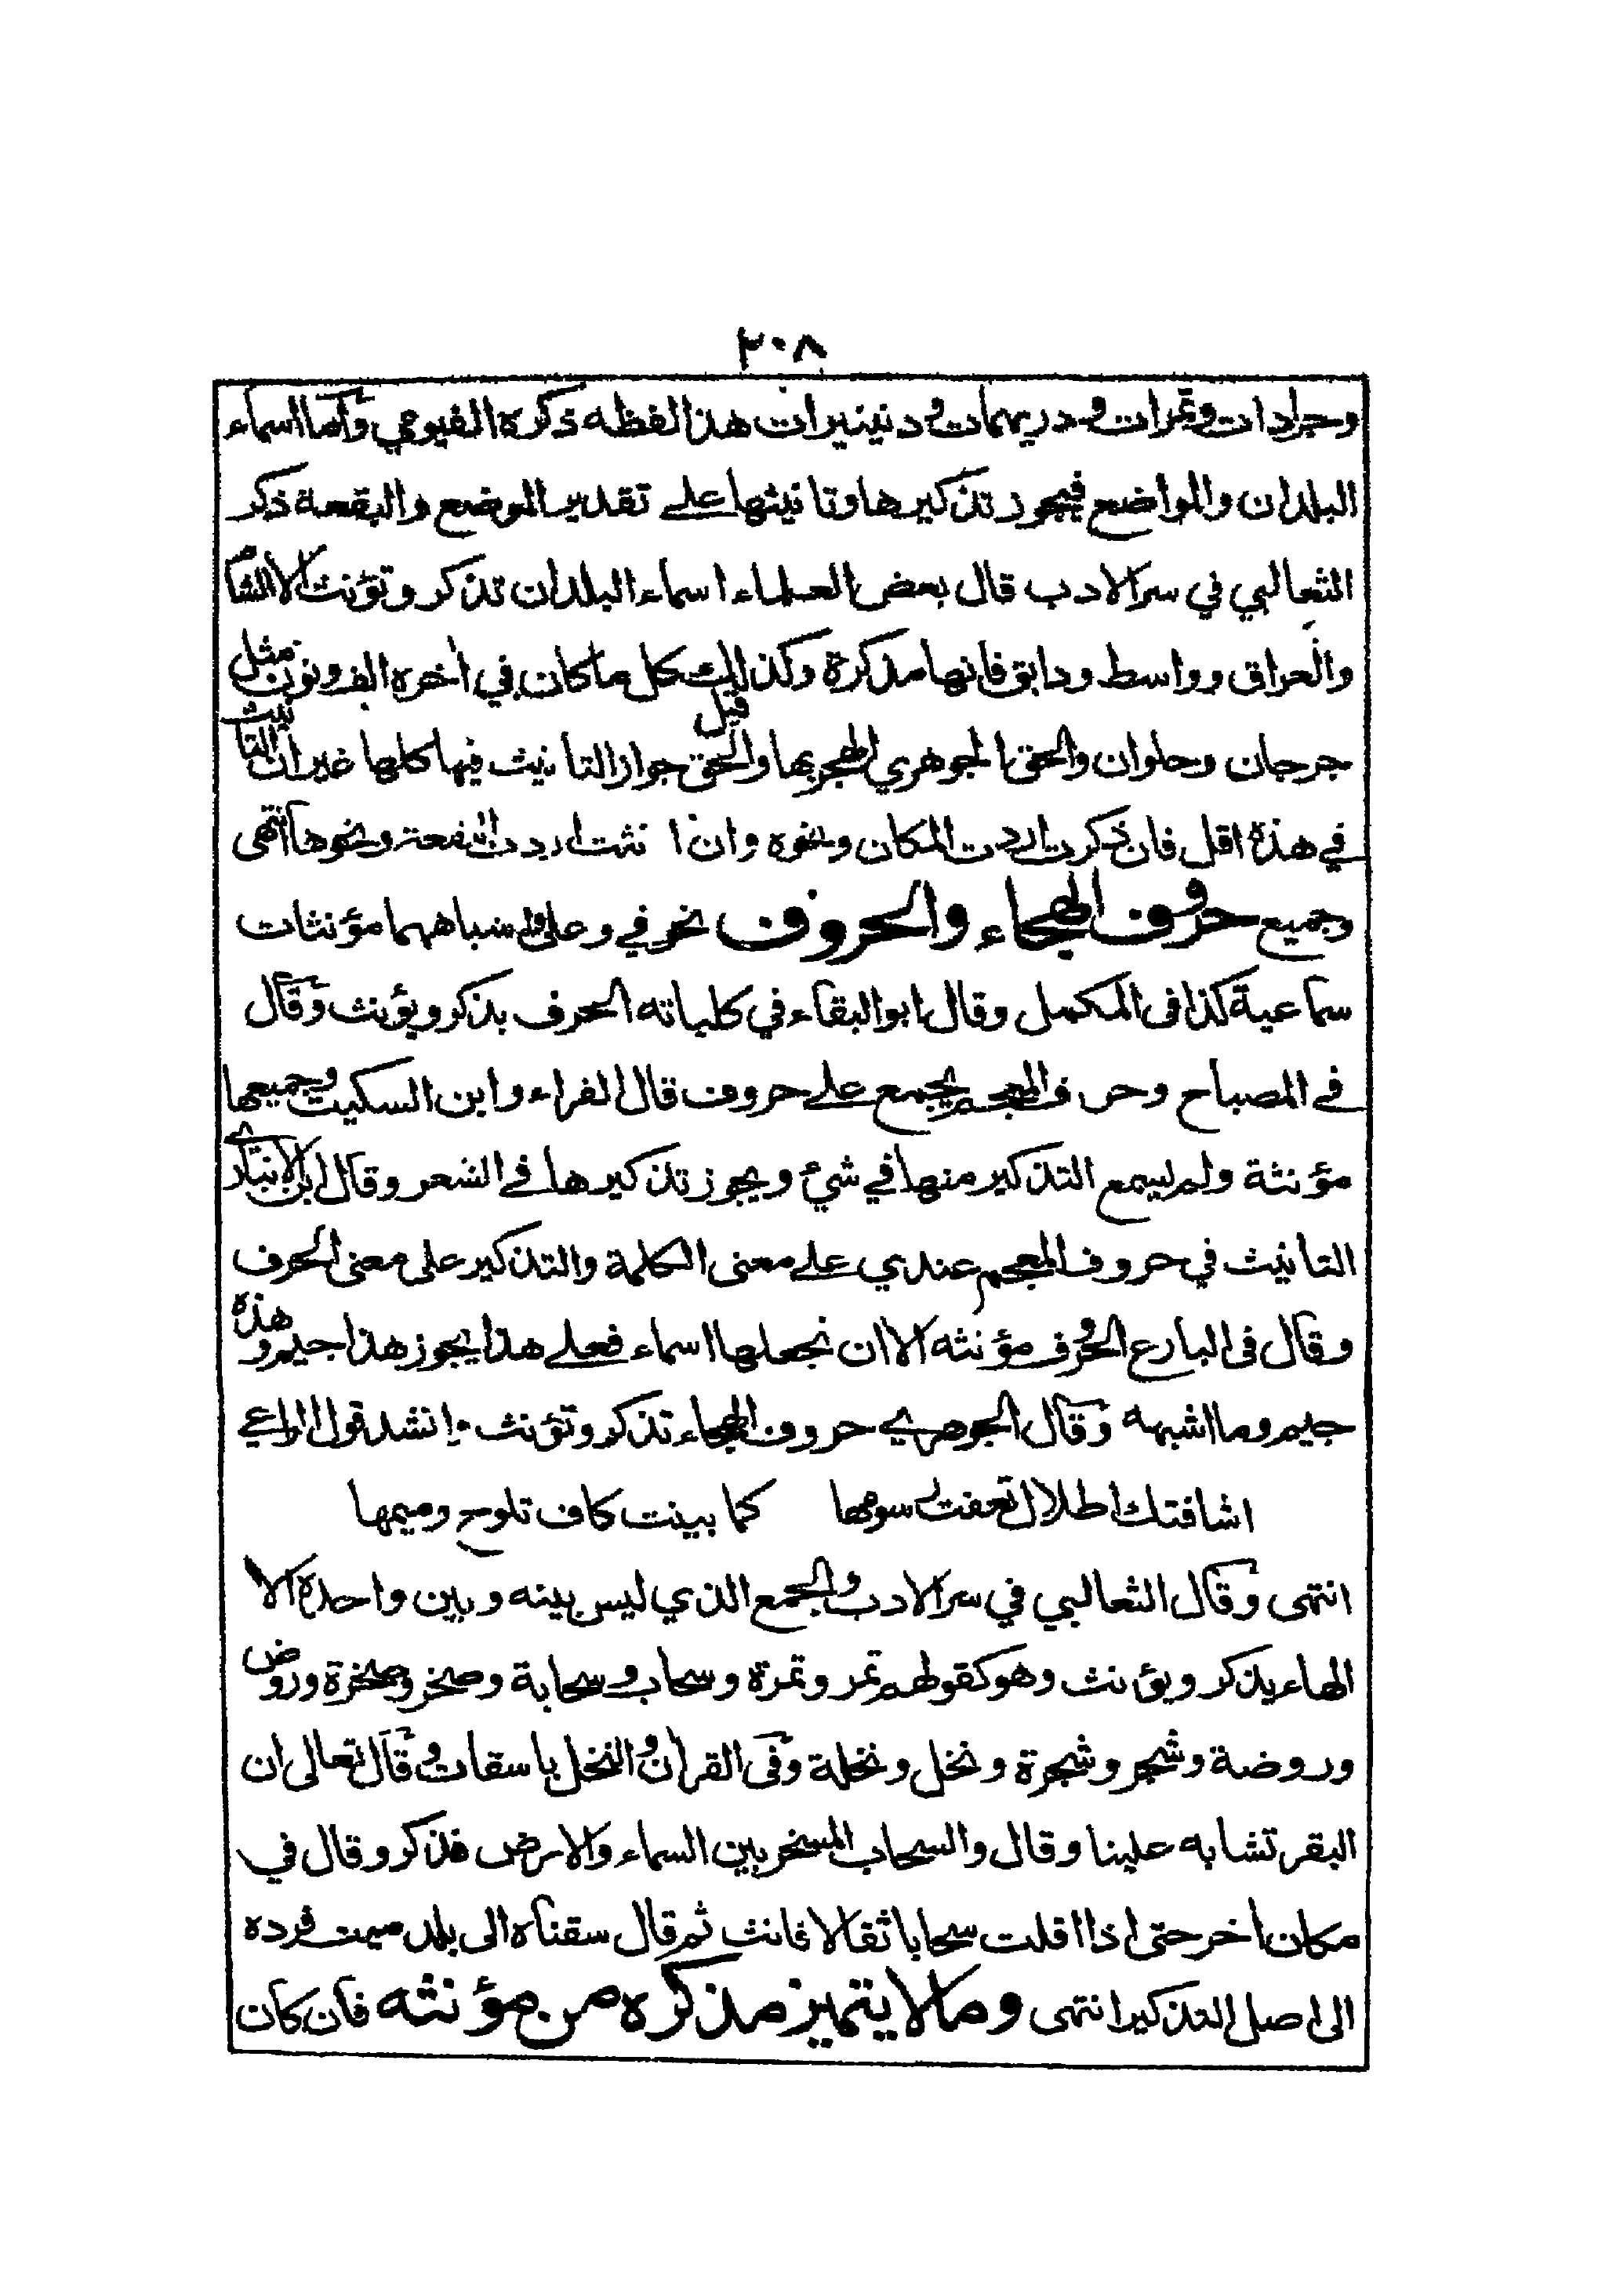 ٢٠٨
وجرادات وتمرات ودريهمات ودنينيرات هذا لفظه ذكره الفيومي وأما اسماء
البلدان والمواضع فيجوز تذكيرها وتانيثها على تقدير الموضع والبقعة ذكر
الثعالبي في سر الادب قال بعض العلماء اسماء البلدان تذكر وتؤنث الا الشام
والعراق وواسط ودابق فانها مذكرة وكذلك كل ما كان في اخره الف ونون مثل
جرجان وحلوان والحق الجوهري الهجر بها والحق قيل جواز التانيث فيها كلها غير ان التانيث
في هذه اقل فان ذكرت اردت المكان ونحوه وان انثت اردت البقعة ونحوها انتهى
وجميع حروف الهجاء والحروف نحو في وعلى واشباههما مؤنثات
سماعية كذا في المكمل وقال ابو البقاء في كلياته الحرف يذكر ويؤنث وقال
في المصباح وحرف المعجم يجمع على حروف قال الفراء وابن السكيت وجميعها
مؤنثة ولم يسمع التذكير منها في شيء ويجوز تذكيرها في الشعر وقال ابن الانباري
التانيث في حروف المعجم عندي على معنى الكلمة والتذكير على معنى الحرف
وقال في البارع الحروف مؤنثه الا ان نجعلها اسماء فعلى هذا يجوز هذا جيم وهذه
جيم وما اشبهه وقال الجوهري حروف الهجاء تذكر وتؤنث وانشد قول الراعي
اشاقتك اطلال تعفت رسومها كما بينت كاف تلوح وميمها
انتهى وقال الثعالبي في سر الادب والجمع الذي ليس بينه وبين واحده الا
الهاء يذكر ويؤنث وهو كقولهم تمر وتمرة وسحاب وسحابة وصخر وصخرة وروض
وروضة وشجر وشجرة ونخل ونخلة وفي القرآن والنخل باسقات وقال تعالى ان
البقر تشابه علينا وقال والسحاب المسخر بين السماء والارض فذكر وقال في
مكان اخر حتى اذا اقلت سحابا ثقالا فانث ثم قال سقناه الى بلد ميت فرده
الى اصل التذكير انتهى وما لا يتميز مذكره من مؤنثه فان كان